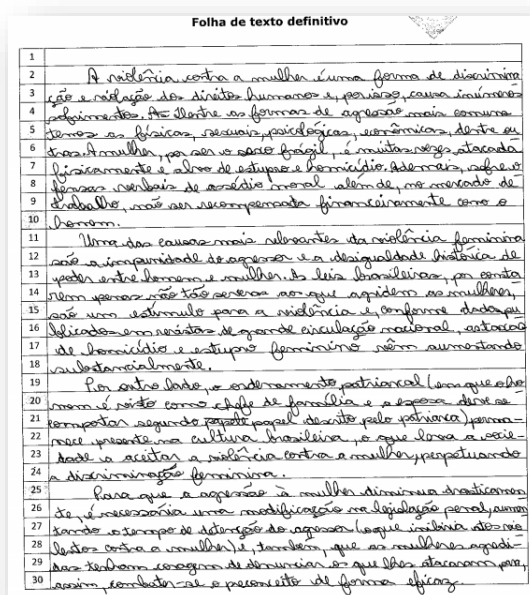 Folha de texto definitivo
1
2 A violência contra a mulher é uma forma de discrimina
3 ção e violação dos direitos humanos e, por isso, causa inúmeros
4 sofrimentos. Dentre as formas de agressão mais comuns
5 temos as físicas, sexuais, psicológicas, econômicas, dentre ou
6 tras. A mulher, por ser o sexo frágil, é muitas vezes, atacada
7 fisicamente e alvo de estupro e homicídio. Ademais, sofre o
8 fensas verbais de assédio moral além de, no mercado de
9 trabalho, não ser recompensada financeiramente como o
10 homem.
11 Uma das causas mais relevantes da violência feminina
12 são a impunidade do agressor e a desigualdade histórica de
13 poder entre homem e mulher. As leis brasileiras, por conta
14 rem penas não tão severas aos que agridem as mulheres,
15 são um estímulo para a violência e, conforme dados pu
16 blicados em revistas de grande circulação nacional, as taxas
17 de homicídio e estupro feminino vêm aumentando
18 substancialmente.
19 Por outro lado, o ordenamento patriarcal (em que o ho
20 mem é visto como chefe de família e a esposa deve se
21 comportar segundo papel descrito pelo patriarca) perma-
22 nece presente na cultura brasileira, o que leva a socie
23 dade a aceitar a violência contra a mulher, perpetuando
24 a discriminação feminina.
25 Para que a agressão à mulher diminua drasticamen
26 te, é necessária uma modificação na legislação penal, aumen
27 tando o tempo de detenção do agressor (o que inibiria atos vio
28 lentos contra a mulher) e, também, que as mulheres agredi-
29 das tenham coragem de denunciar os que lhes atacaram para,
30 assim, combater-se o preconceito de forma eficaz.